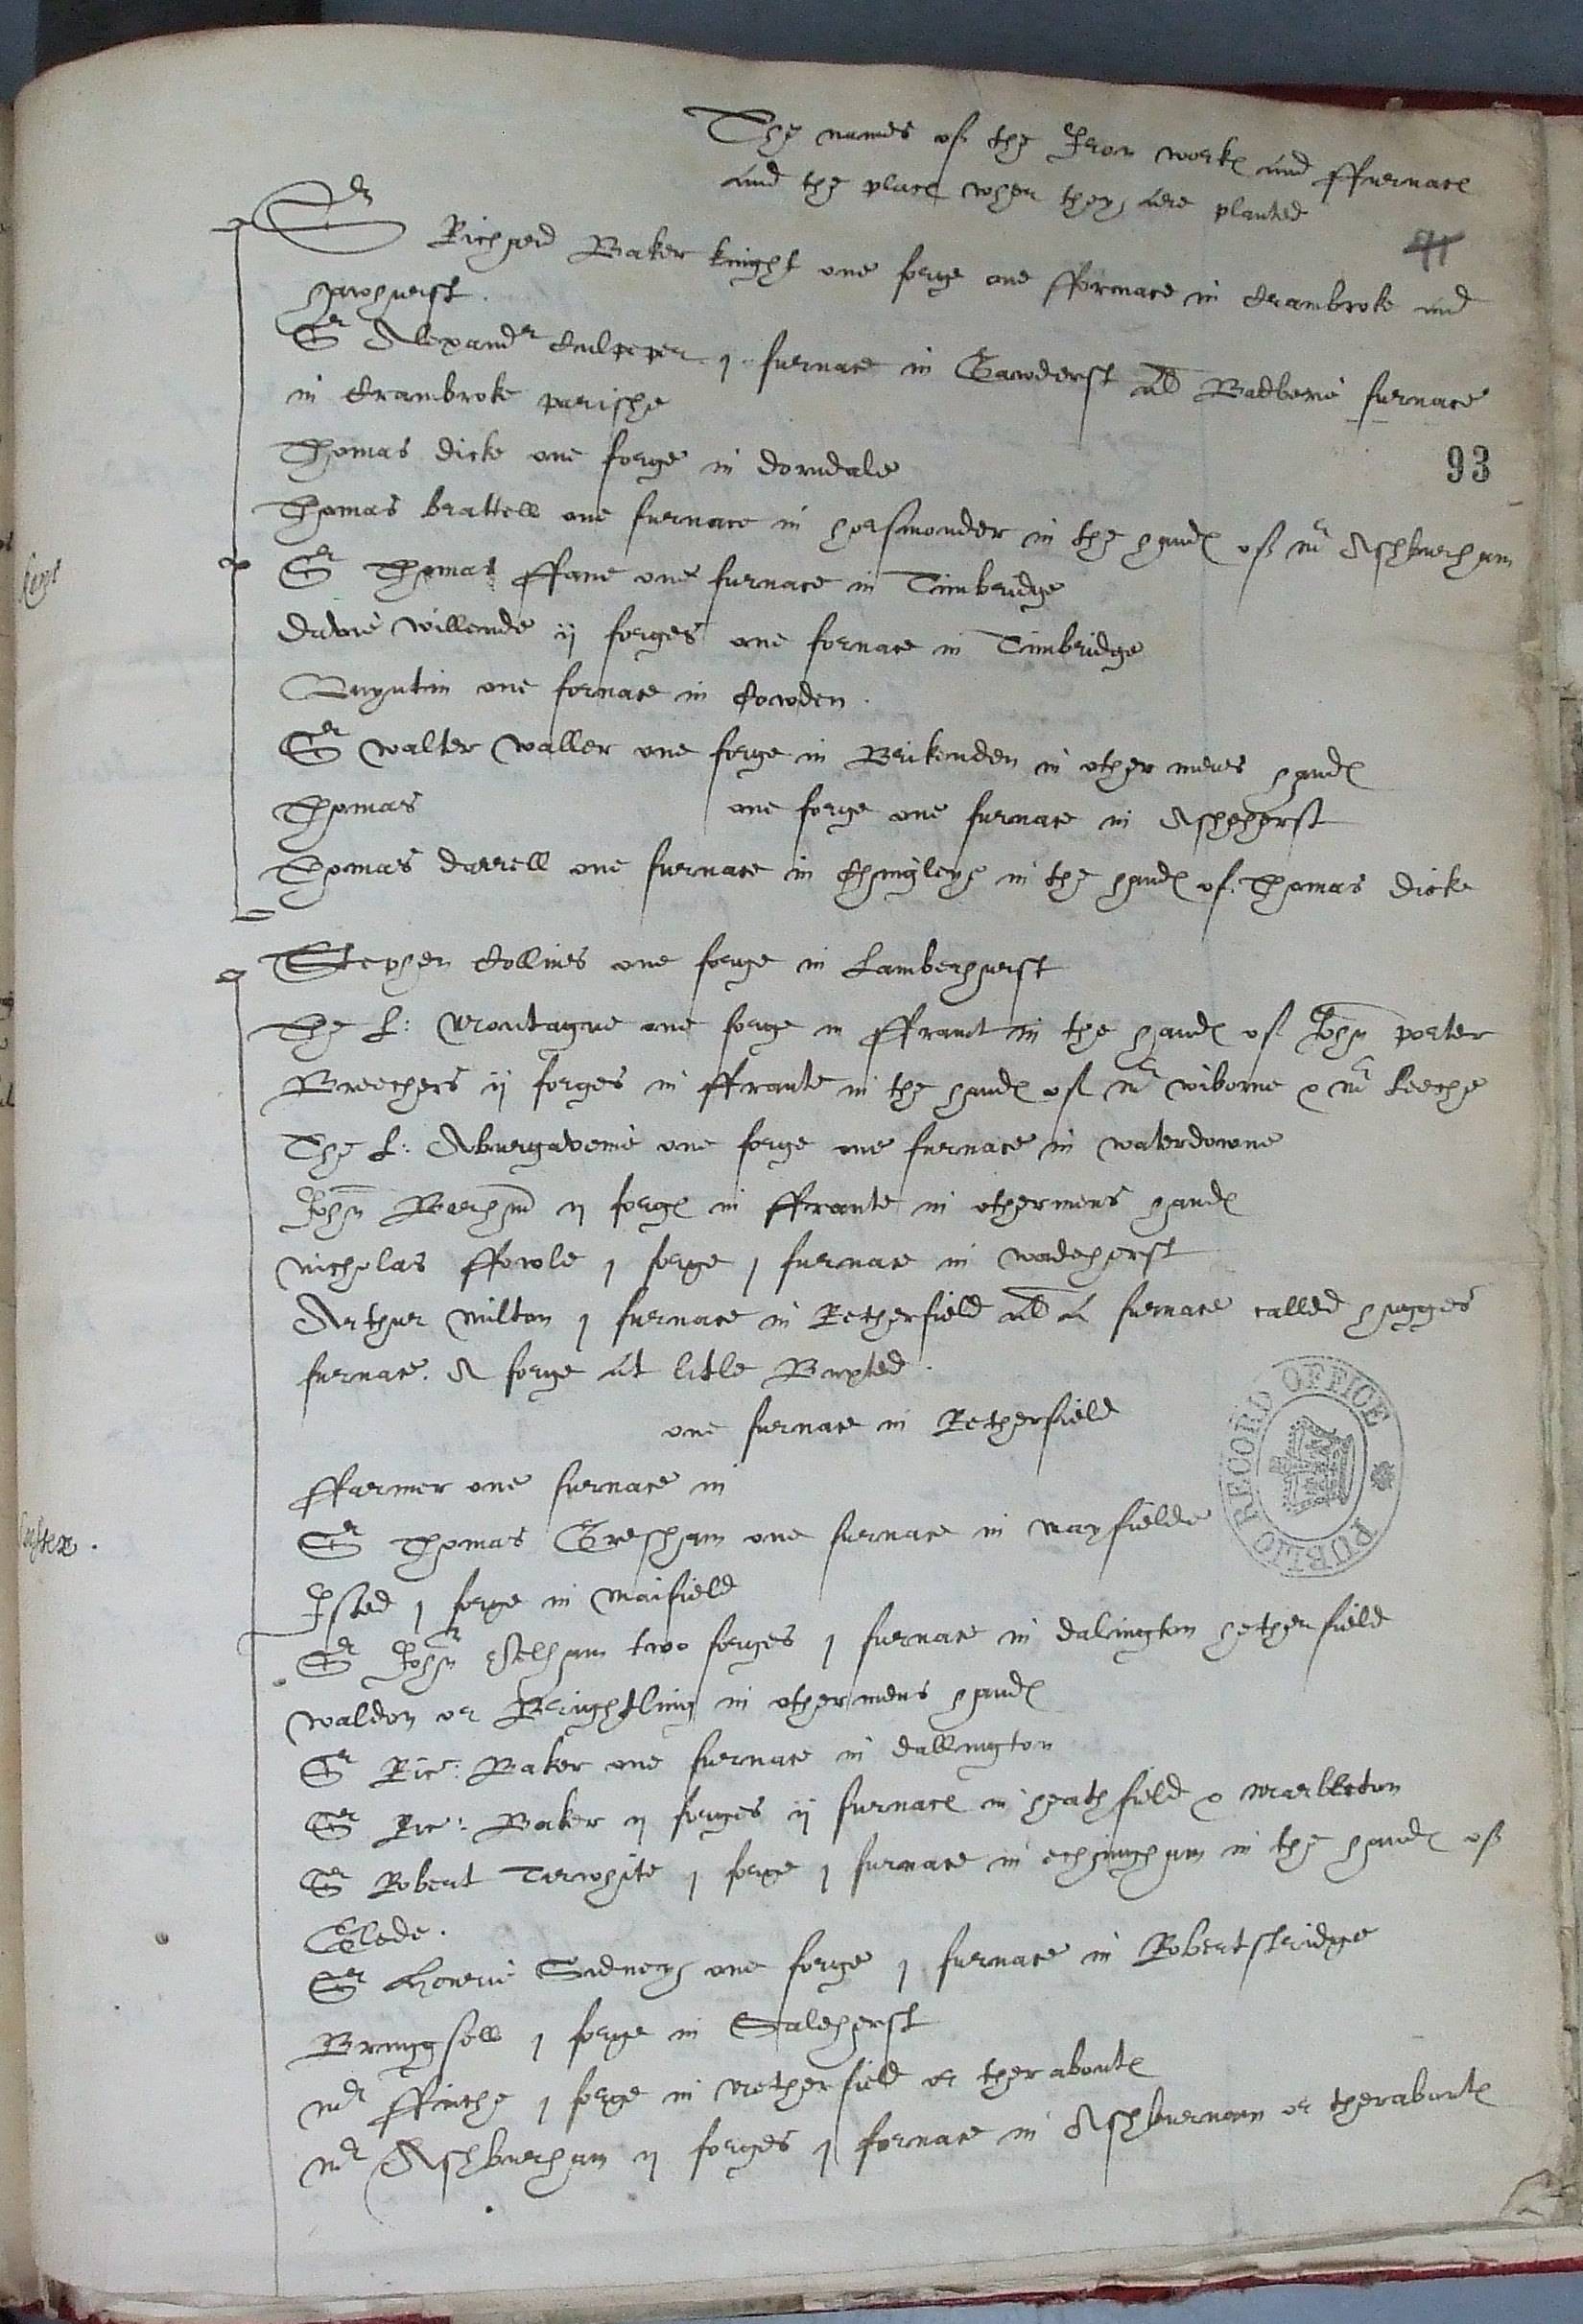 The names of the Iron work and ffurnace
and the place wher they are planted
Sr Richard Baker knight one forge one ffornace in Crambroke and
hawhurst.
Sr Alexandr Culpeper j furnace in Gawderst Bedberie furnace
in Crambroke parishe
93
Thomas dicke one forge in dorndale
Thomas brattell one furnace in horsmonder in the hand of mr Ashburham
Kent
Sr Thomas ffane one furnace in Tunbridge
Davie Willerde ij forges one fornace in Tunbridge
Quyntin one fornace in Cowden.
Sr Walter Waller one forge in Brikenden in other mens hand
Thomas one forge one furnace in Asheherst
Thomas darrell one furnace in Chingley in the hand of Thomas dicke
Stephen Collines one forge in Lamberhurst
The L: Montague one forge in ffrant in the hand of John porter
Breechers ij forges in ffrante in the hand of mr wiborne & mr Leeche
The L: Aburgavenie one forge one furnace in waterdowne
John Barham ij forg in ffrante in othermens hand
Nicholas ffowle j forge j furnace in wadeherst
Arthur Milton j furnace in Retherfield a furnace called hugges
furnace. A forge at litle Buxted.
one furnace in Retherfield
ffarmer one furnace in
Sussex.
Sr Thomas Gresham one furnace in mayfielde
Isted j forge in Maifield
Sr John Pelham two forges j furnace in dalington hetherfield
Waldon or Brightling in othermens hand
Sr Ric: Baker one furnace in dallington
Sr Ric: Baker ij forges ij furnace in heathfield & Warbleton
Sr Robert Tirwhite j forge j furnace in echingham in the hand of
Glede.
Sr Henrie Sidney one forge j furnace in Robertsbridge
Brnggsell j forge in Saleherst
mr ffinche j forge in Netherfield or therabout
mr Ashburham ij forges j fornace in Ashburnam or therabout
PUBLIC RECORD OFFICE